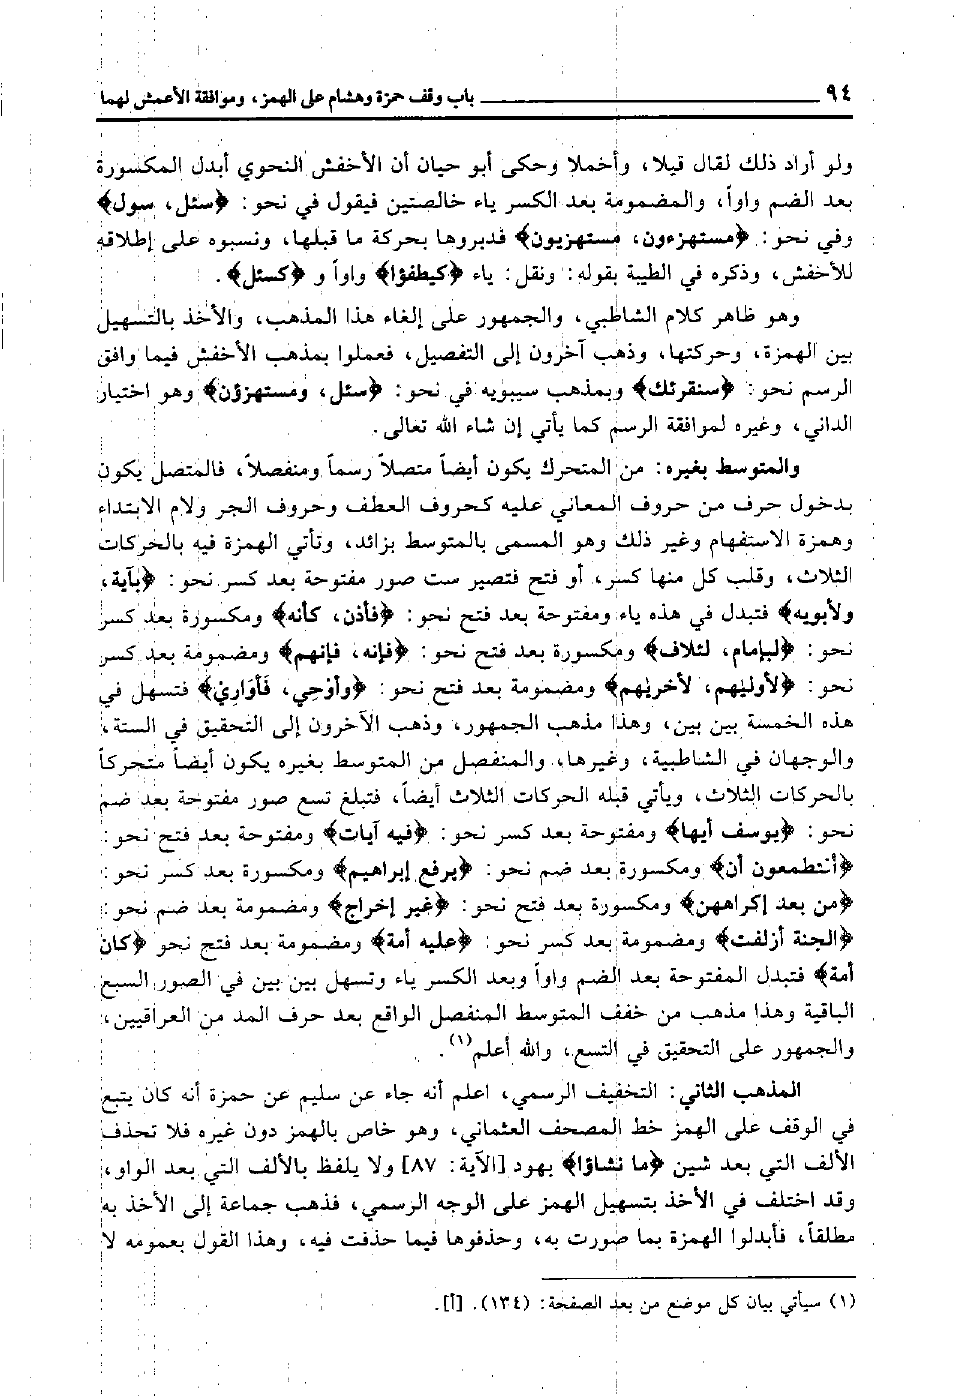 ٩٤ باب وقف حمزة وهشام على الهمز، وموافقة الأعمش لهما
ولو أراد ذلك لقال قيلا، وأخملا وحكى أبو حيان أن الأخفش النحوي أبدل المكسورة
بعد الضم واواً، والمضمومة بعد الكسر ياء خالصتين فيقول في نحو: ﴿سئل، سول﴾
وفي نحو: ﴿مستهزءون، مستهزيون﴾ فدبروها بحركة ما قبلها، ونسبوه على إطلاقه
للأخفش، وذكره في الطيبة بقوله: ونقل: ياء ﴿كيطفؤا﴾ واواً و ﴿كسئل﴾.
وهو ظاهر كلام الشاطبي، والجمهور على إلغاء هذا المذهب، والأخذ بالتسهيل
بين الهمزة، وحركتها، وذهب آخرون إلى التفصيل، فعملوا بمذهب الأخفش فيما وافق
الرسم نحو: ﴿سنقرئك﴾ وبمذهب سيبويه في نحو: ﴿سئل، ومستهزؤن﴾ وهو اختيار
الداني، وغيره لموافقة الرسم كما يأتي إن شاء الله تعالى.
والمتوسط بغيره: من المتحرك يكون أيضاً متصلاً رسماً ومنفصلاً، فالمتصل يكون
بدخول حرف من حروف المعاني عليه كحروف العطف وحروف الجر ولام الابتداء
وهمزة الاستفهام وغير ذلك وهو المسمى بالمتوسط بزائد، وتأتي الهمزة فيه بالحركات
الثلاث، وقلب كل منها كسر، أو فتح فتصير ست صور مفتوحة بعد كسر نحو: ﴿بآية،
ولأبويه﴾ فتبدل في هذه ياء ومفتوحة بعد فتح نحو: ﴿فأذن، كأنه﴾ ومكسورة بعد كسر
نحو: ﴿لبإمام، لئلاف﴾ ومكسورة بعد فتح نحو: ﴿فإنه، فإنهم﴾ ومضمومة بعد كسر
نحو: ﴿لأوليٰهم، لأخريٰهم﴾ ومضمومة بعد فتح نحو: ﴿وأوحي، فأواري﴾ فتسهل في
هذه الخمسة بين بين، وهذا مذهب الجمهور، وذهب الآخرون إلى التحقيق في الستة،
والوجهان في الشاطبية، وغيرها، والمنفصل من المتوسط بغيره يكون أيضاً متحركاً
بالحركات الثلاث، ويأتي قبله الحركات الثلاث أيضاً، فتبلغ تسع صور مفتوحة بعد ضم
نحو: ﴿يوسف أيها﴾ ومفتوحة بعد كسر نحو: ﴿فيه آيات﴾ ومفتوحة بعد فتح نحو:
﴿أفتطمعون أن﴾ ومكسورة بعد ضم نحو: ﴿يرفع إبراهيم﴾ ومكسورة بعد كسر نحو:
﴿من بعد إكراههن﴾ ومكسورة بعد فتح نحو: ﴿غير إخراج﴾ ومضمومة بعد ضم نحو:
﴿الجنة أزلفت﴾ ومضمومة بعد كسر نحو: ﴿عليه أمة﴾ ومضمومة بعد فتح نحو ﴿كان
أمة﴾ فتبدل المفتوحة بعد الضم واواً وبعد الكسر ياء وتسهل بين بين في الصور السبع
الباقية وهذا مذهب من خفف المتوسط المنفصل الواقع بعد حرف المد من العراقيين،
والجمهور على التحقيق في التسع، والله أعلم(١).
المذهب الثاني: التخفيف الرسمي، اعلم أنه جاء عن سليم عن حمزة أنه كان يتبع
في الوقف على الهمز خط المصحف العثماني، وهو خاص بالهمز دون غيره فلا تحذف
الألف التي بعد شين ﴿ما نشاؤا﴾ بهود [الآية: ٨٧] ولا يلفظ بالألف التي بعد الواو،
وقد اختلف في الأخذ بتسهيل الهمز على الوجه الرسمي، فذهب جماعة إلى الأخذ به
مطلقاً، فأبدلوا الهمزة بما صورت به، وحذفوها فيما حذفت فيه، وهذا القول بعمومه لا
(١) سيأتي بيان كل موضع من بعد الصفحة: (١٣٤). [أ].